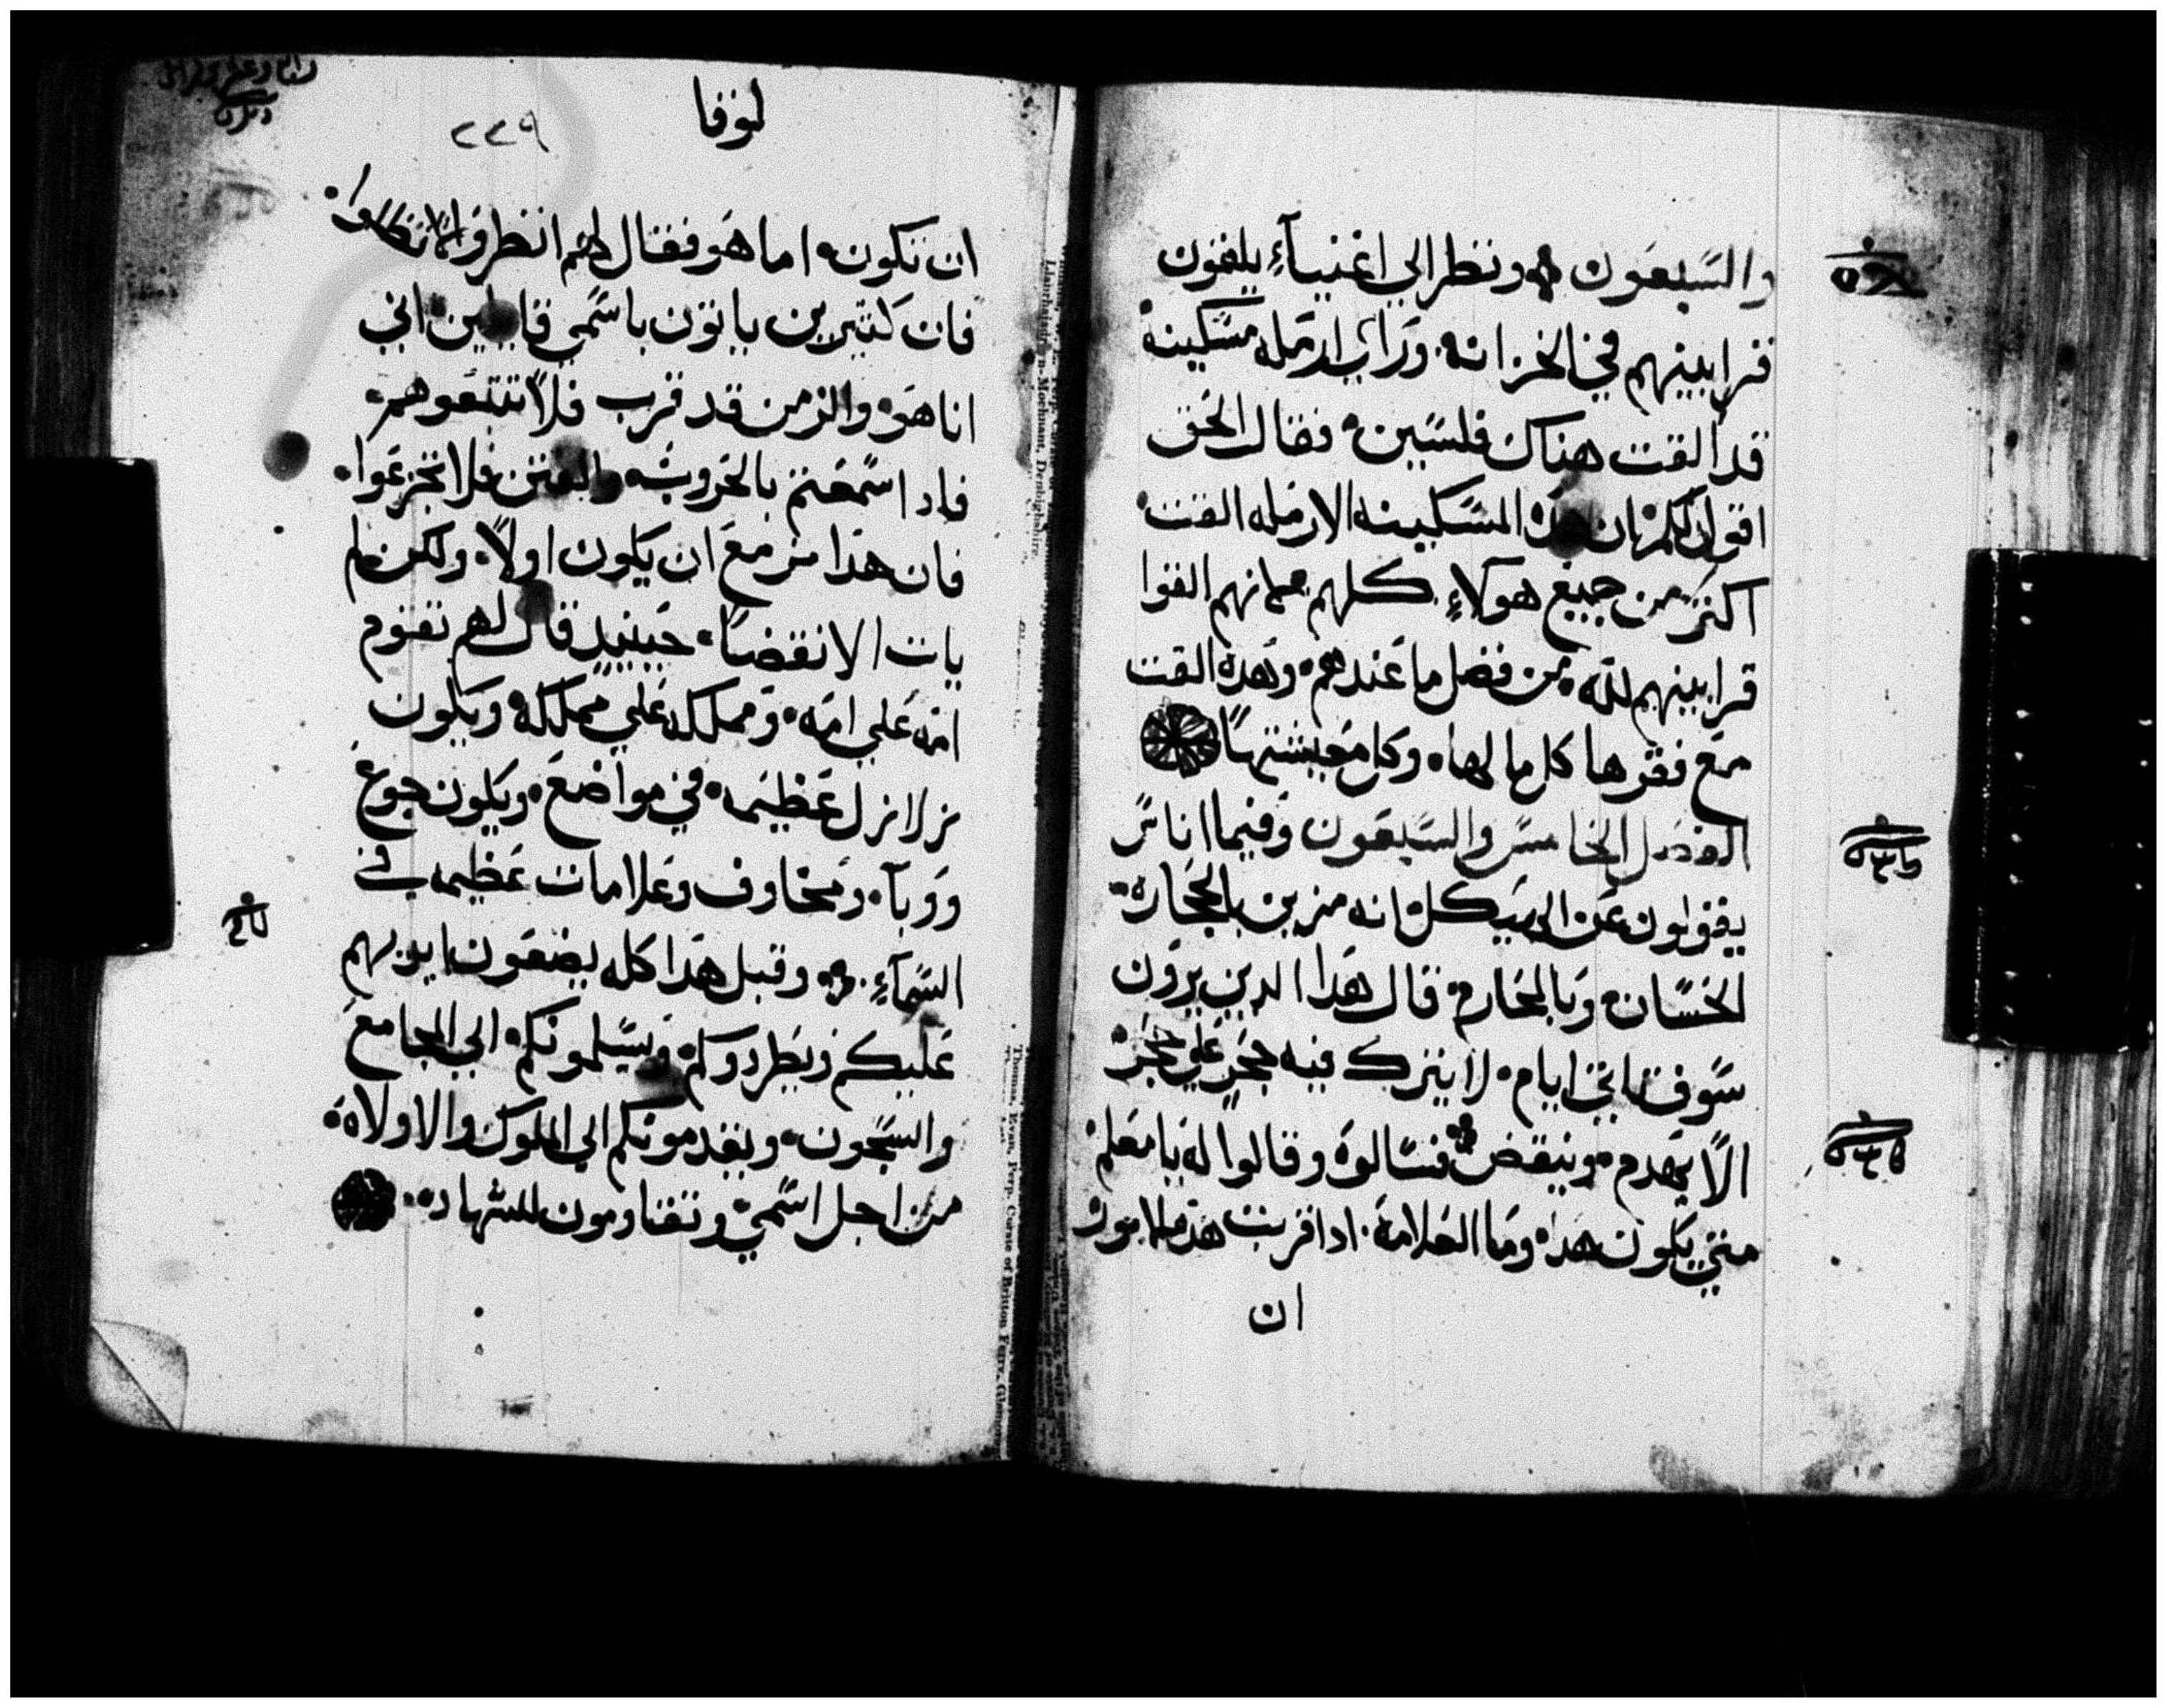 والسبعون ونظر الي اغنياء يلقون
قرابينهم في الخزانه وراي ارمله مسكينه
قد القت هناك فلسين فقال الحق
اقول لكم ان هذه المسكينه الارمله القت
اكثر من جميع هولاء كلهم لانهم القوا
قرابينهم لله من فضل ما عندهم وهذه القت
مع فقرها كل ما لها وكل معيشتها
الفصل الخامس والسبعون وفيما اناس
يقولون عن الهيكل انه مزين بالحجاره
الحسان وبالمحارم قال هذا الذين يرون
سوف تاتي ايام لا يترك فيه حجر علي حجر
الا يهدم وينقض فسالوه وقالوا له يا معلم
متي يكون هذا وما العلامه اذا قربت هذه
ان
لوقا
٢٢٩
ان تكون اما هو فقال لهم انظروا لا تضلوا
فان كتيرين ياتون باسمي قايلين اني
انا هو والزمن قد قرب فلا تتبعوهم
فادا سمعتم بالحروب والفتن فلا تجزعوا
فان هذا مزمع ان يكون اولا ولكن لم
يات الانقضا حينيد قال لهم تقوم
امه علي امه ومملكه علي مملكه ويكون
زلازل عظيمه في مواضع ويكون جوع
ووبا ومخاوف وعلامات عظيمه في
السماء وقبل هذا كله يضعون ايديهم
عليكم ويطردوكم ويسلمونكم الي المجامع
والسجون ويقدمونكم الي الملوك والاولاه
من اجل اسمي وتقاومون للشهاده